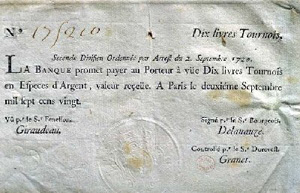 N.° 175210 Dix livres Tournois.
Seconde Division Ordonnée par Arrest du 2. Septembre 1720.
LA BANQUE promet payer au Porteur à vüe Dix livres Tournois
en Especes d'Argent, valeur reçeüe. A Paris le deuxième Septembre
mil sept cens vingt.
Vû p.r le S.r Fenellon. Signé p.r le S.r Bourgeois.
Giraudeau. Delanauze.
Controllé p.r le S.r Durevest.
Granet.